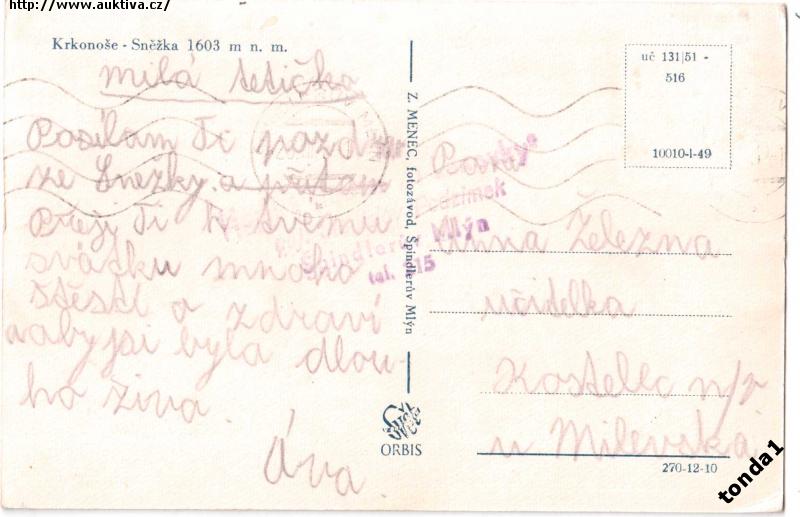 http://www.auktiva.cz/
Krkonoše - Sněžka 1603 m n. m.
milá tetičko
Posílám Ti pozdrav
ze Sněžky a přitom
Přeji Ti k tvému
svátku mnoho
štěstí a zdraví
a abyjsi byla dlou-
ho živa.
Áva.
Z. MENEC, fotozávod, Špindlerův Mlýn
ORBIS
Špindlerův Mlýn
tel. 215
uč 131|51 -
516
10010-I-49
Paní
Anna Železna
učitelka
Kostelec n/v
u Milevska
270-12-10
tonda1